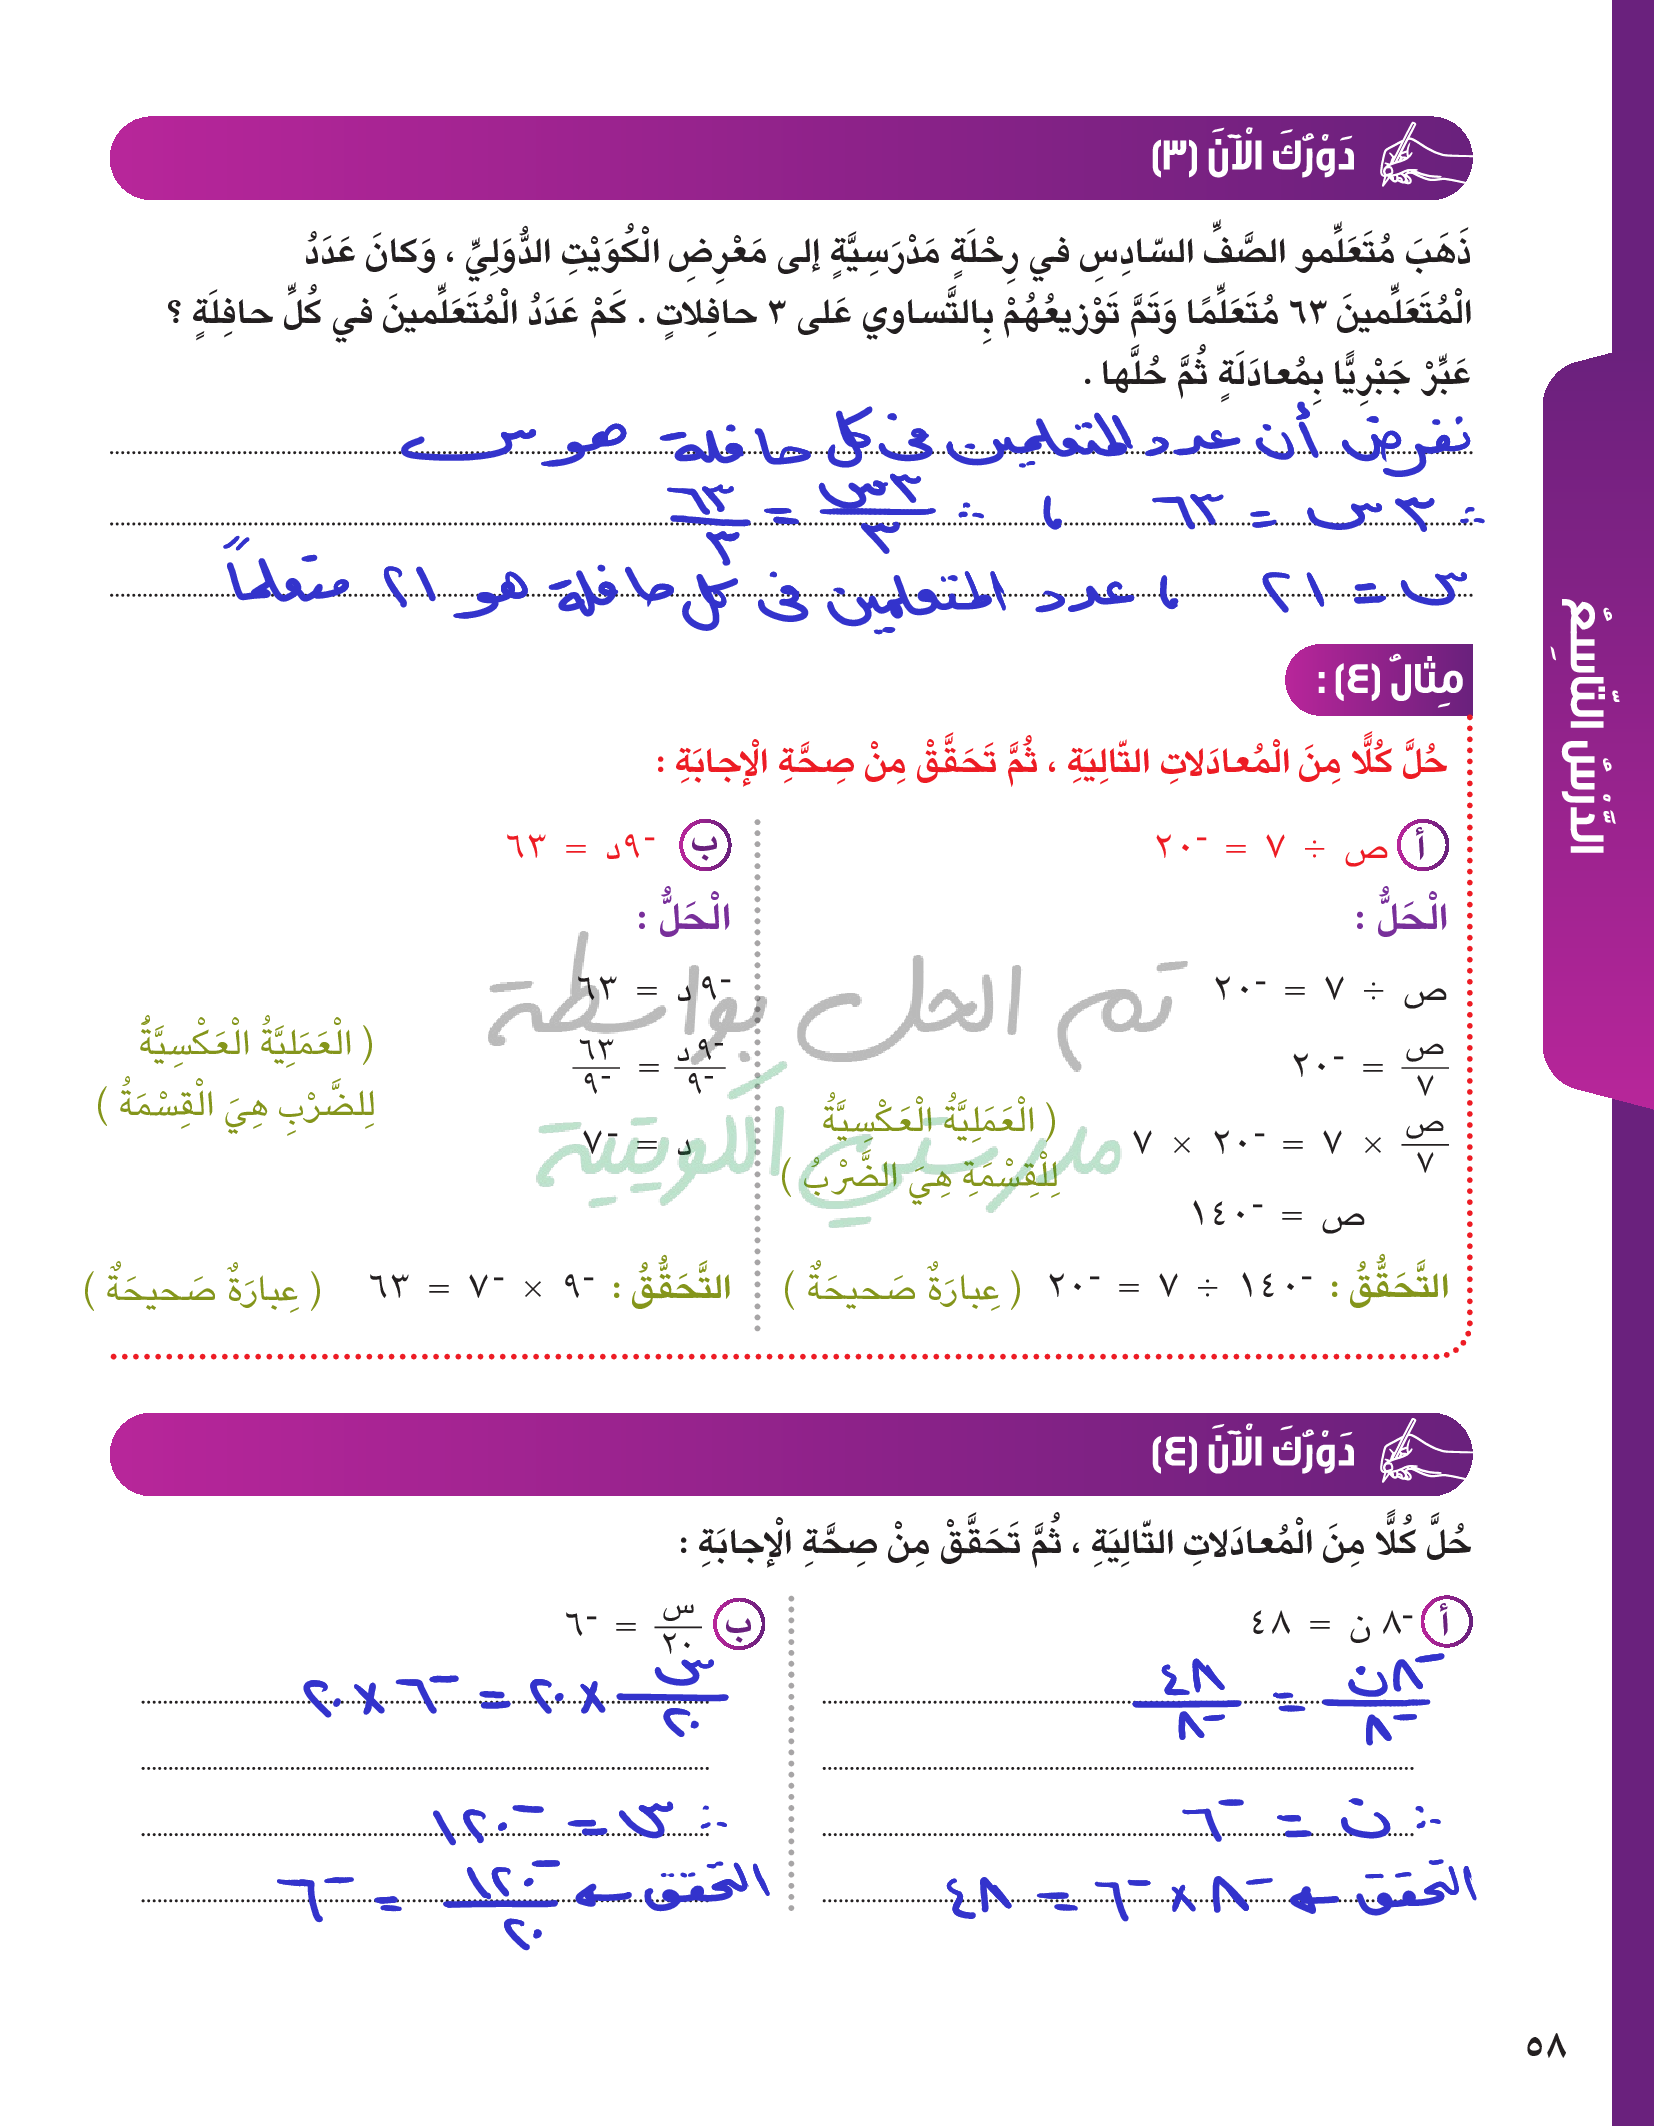 دَوْرُكَ الْآنَ (٣)
ذَهَبَ مُتَعَلِّمو الصَّفِّ السّادِسِ في رِحْلَةٍ مَدْرَسِيَّةٍ إلى مَعْرِضِ الْكُوَيْتِ الدُّوَلِيِّ ، وَكانَ عَدَدُ
الْمُتَعَلِّمينَ ٦٣ مُتَعَلِّمًا وَتَمَّ تَوْزيعُهُمْ بِالتَّساوي عَلى ٣ حافِلاتٍ . كَمْ عَدَدُ الْمُتَعَلِّمينَ في كُلِّ حافِلَةٍ ؟
عَبِّرْ جَبْرِيًّا بِمُعادَلَةٍ ثُمَّ حُلَّها .
نفرض أن عدد المتعلمين في كل حافلة هو س
∴ ٣ س = ٦٣ ، ∴ ٣س/٣ = ٦٣/٣
س = ٢١ ، عدد المتعلمين في كل حافلة هو ٢١ متعلماً
الدَّرْسُ التّاسِعُ
مِثالٌ (٤) :
حُلَّ كُلًّا مِنَ الْمُعادَلاتِ التّالِيَةِ ، ثُمَّ تَحَقَّقْ مِنْ صِحَّةِ الْإجابَةِ :
أ ص ÷ ٧ = ⁻٢٠
الْحَلُّ :
ص ÷ ٧ = ⁻٢٠
ص/٧ = ⁻٢٠
ص/٧ × ٧ = ⁻٢٠ × ٧
( الْعَمَلِيَّةُ الْعَكْسِيَّةُ
لِلْقِسْمَةِ هِيَ الضَّرْبُ )
ص = ⁻١٤٠
التَّحَقُّقُ : ⁻١٤٠ ÷ ٧ = ⁻٢٠ ( عِبارَةٌ صَحيحَةٌ )
ب ⁻٩د = ٦٣
الْحَلُّ :
⁻٩د = ٦٣
⁻٩د/⁻٩ = ٦٣/⁻٩
( الْعَمَلِيَّةُ الْعَكْسِيَّةُ
لِلضَّرْبِ هِيَ الْقِسْمَةُ )
د = ⁻٧
التَّحَقُّقُ : ⁻٩ × ⁻٧ = ٦٣ ( عِبارَةٌ صَحيحَةٌ )
تم الحل بواسطة
مدرستي الكويتية
دَوْرُكَ الْآنَ (٤)
حُلَّ كُلًّا مِنَ الْمُعادَلاتِ التّالِيَةِ ، ثُمَّ تَحَقَّقْ مِنْ صِحَّةِ الْإجابَةِ :
أ ⁻٨ ن = ٤٨
⁻٨ن/⁻٨ = ٤٨/⁻٨
∴ ن = ⁻٦
التحقق ← ⁻٨ × ⁻٦ = ٤٨
ب س/٢٠ = ⁻٦
س/٢٠ × ٢٠ = ⁻٦ × ٢٠
∴ س = ⁻١٢٠
التحقق ← ⁻١٢٠/٢٠ = ⁻٦
٥٨